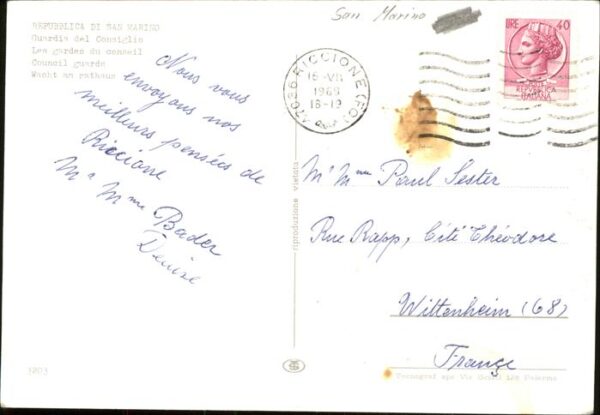 San Marino
REPUBBLICA DI SAN MARINO
Guardia del Consiglio
Les gardes du conseil
Council guards
Wacht am rathaus
Nous vous
envoyons nos
meilleurs pensées de
Riccione
Mr Mme Bader
Denise
47036 RICCIONE (FO)
16-VII
1969
18-19
LIRE 40
REPUBBLICA
ITALIANA
riproduzione vietata
Mr Mme Paul Sester
Rue Rapp, Cité Théodore
Wittenheim (68)
France
1203
Tecnograf spa Via
Palermo